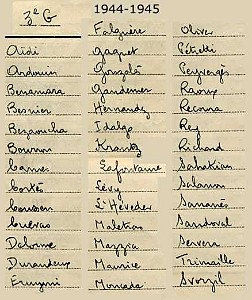 3e G
1944-1945
Aïdi
Ardouin
Benamara
Besnier
Bezaucha
Bournon
Camus
Cortés
Cousson
Cuevas
Delorme
Durandeux
Falguière
Gaquet
Gonzalès
Gardenner
Hernandez
Idalgo
Krantz
Lafontaine
Lévy
L'Héveder
Maletras
Mazzia
Maurice
Moncada
Oliver
Pétretti
Peyrergès
Raoux
Recoura
Rey
Richard
Sahakian
Salamon
Samanès
Sandoval
Servera
Trimaille
Svozil